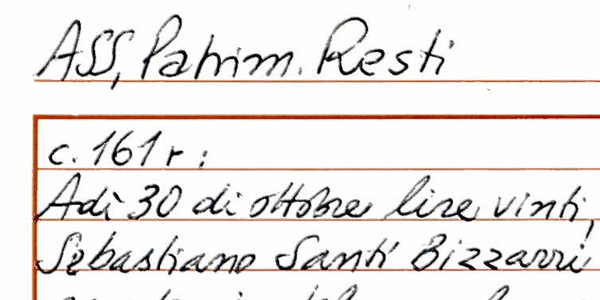 ASS, Patrim. Resti
c. 161 r:
Adì 30 di ottobre lire vinti,
Sebastiano Santi Bizzarri